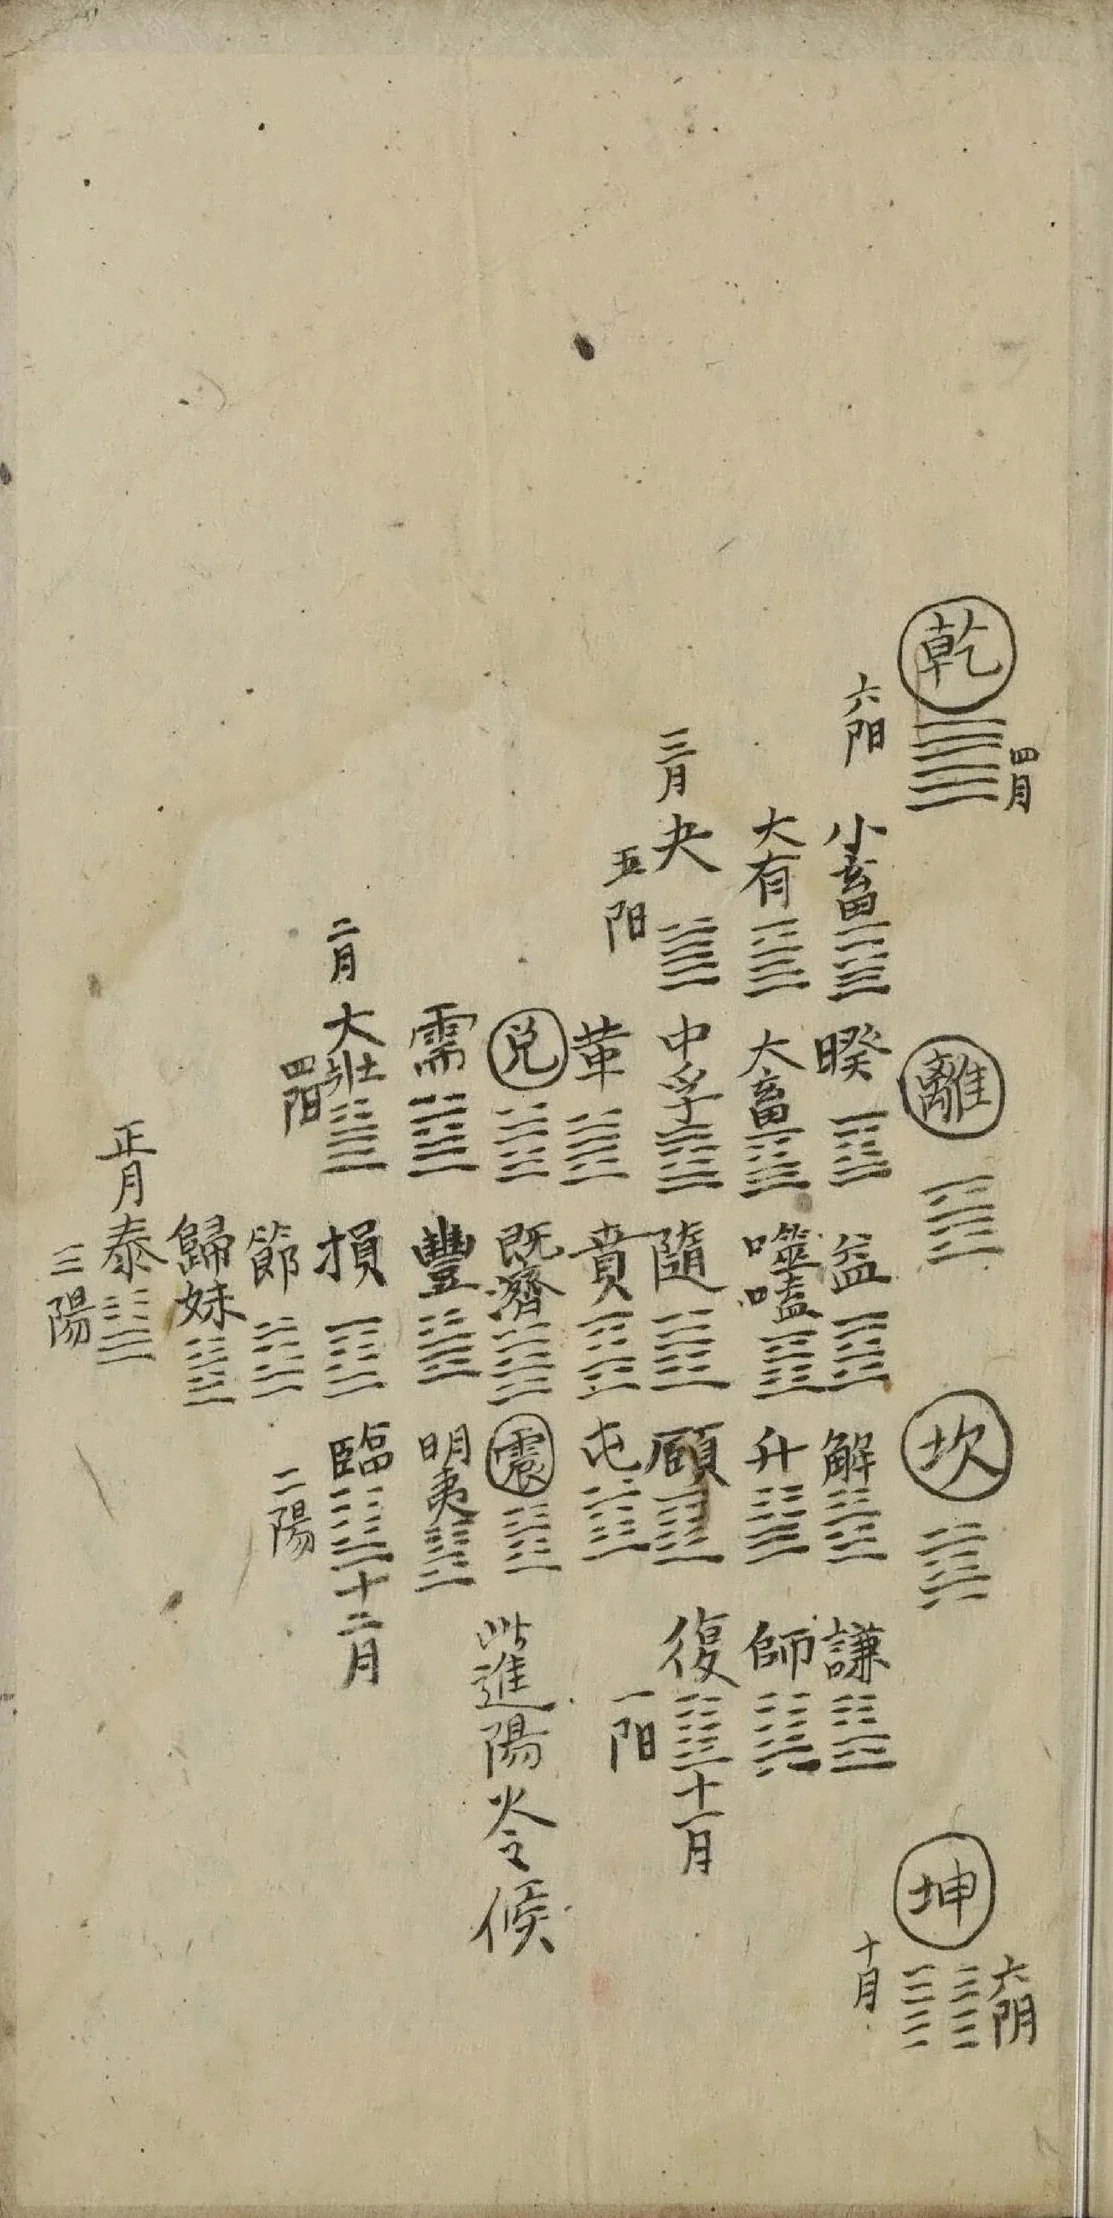 乾
四月
離
坎
坤
六阴
六阳
小畜
暌
益
解
謙
十月
大有
大畜
噬嗑
升
師
三月
夬
中孚
隨
頤
復
十一月
五阳
革
賁
屯
一阳
兌
既濟
震
此進陽火令候
需
豐
明夷
二月
大壯
損
臨
十二月
四阳
節
二陽
歸妹
正月
泰
三陽